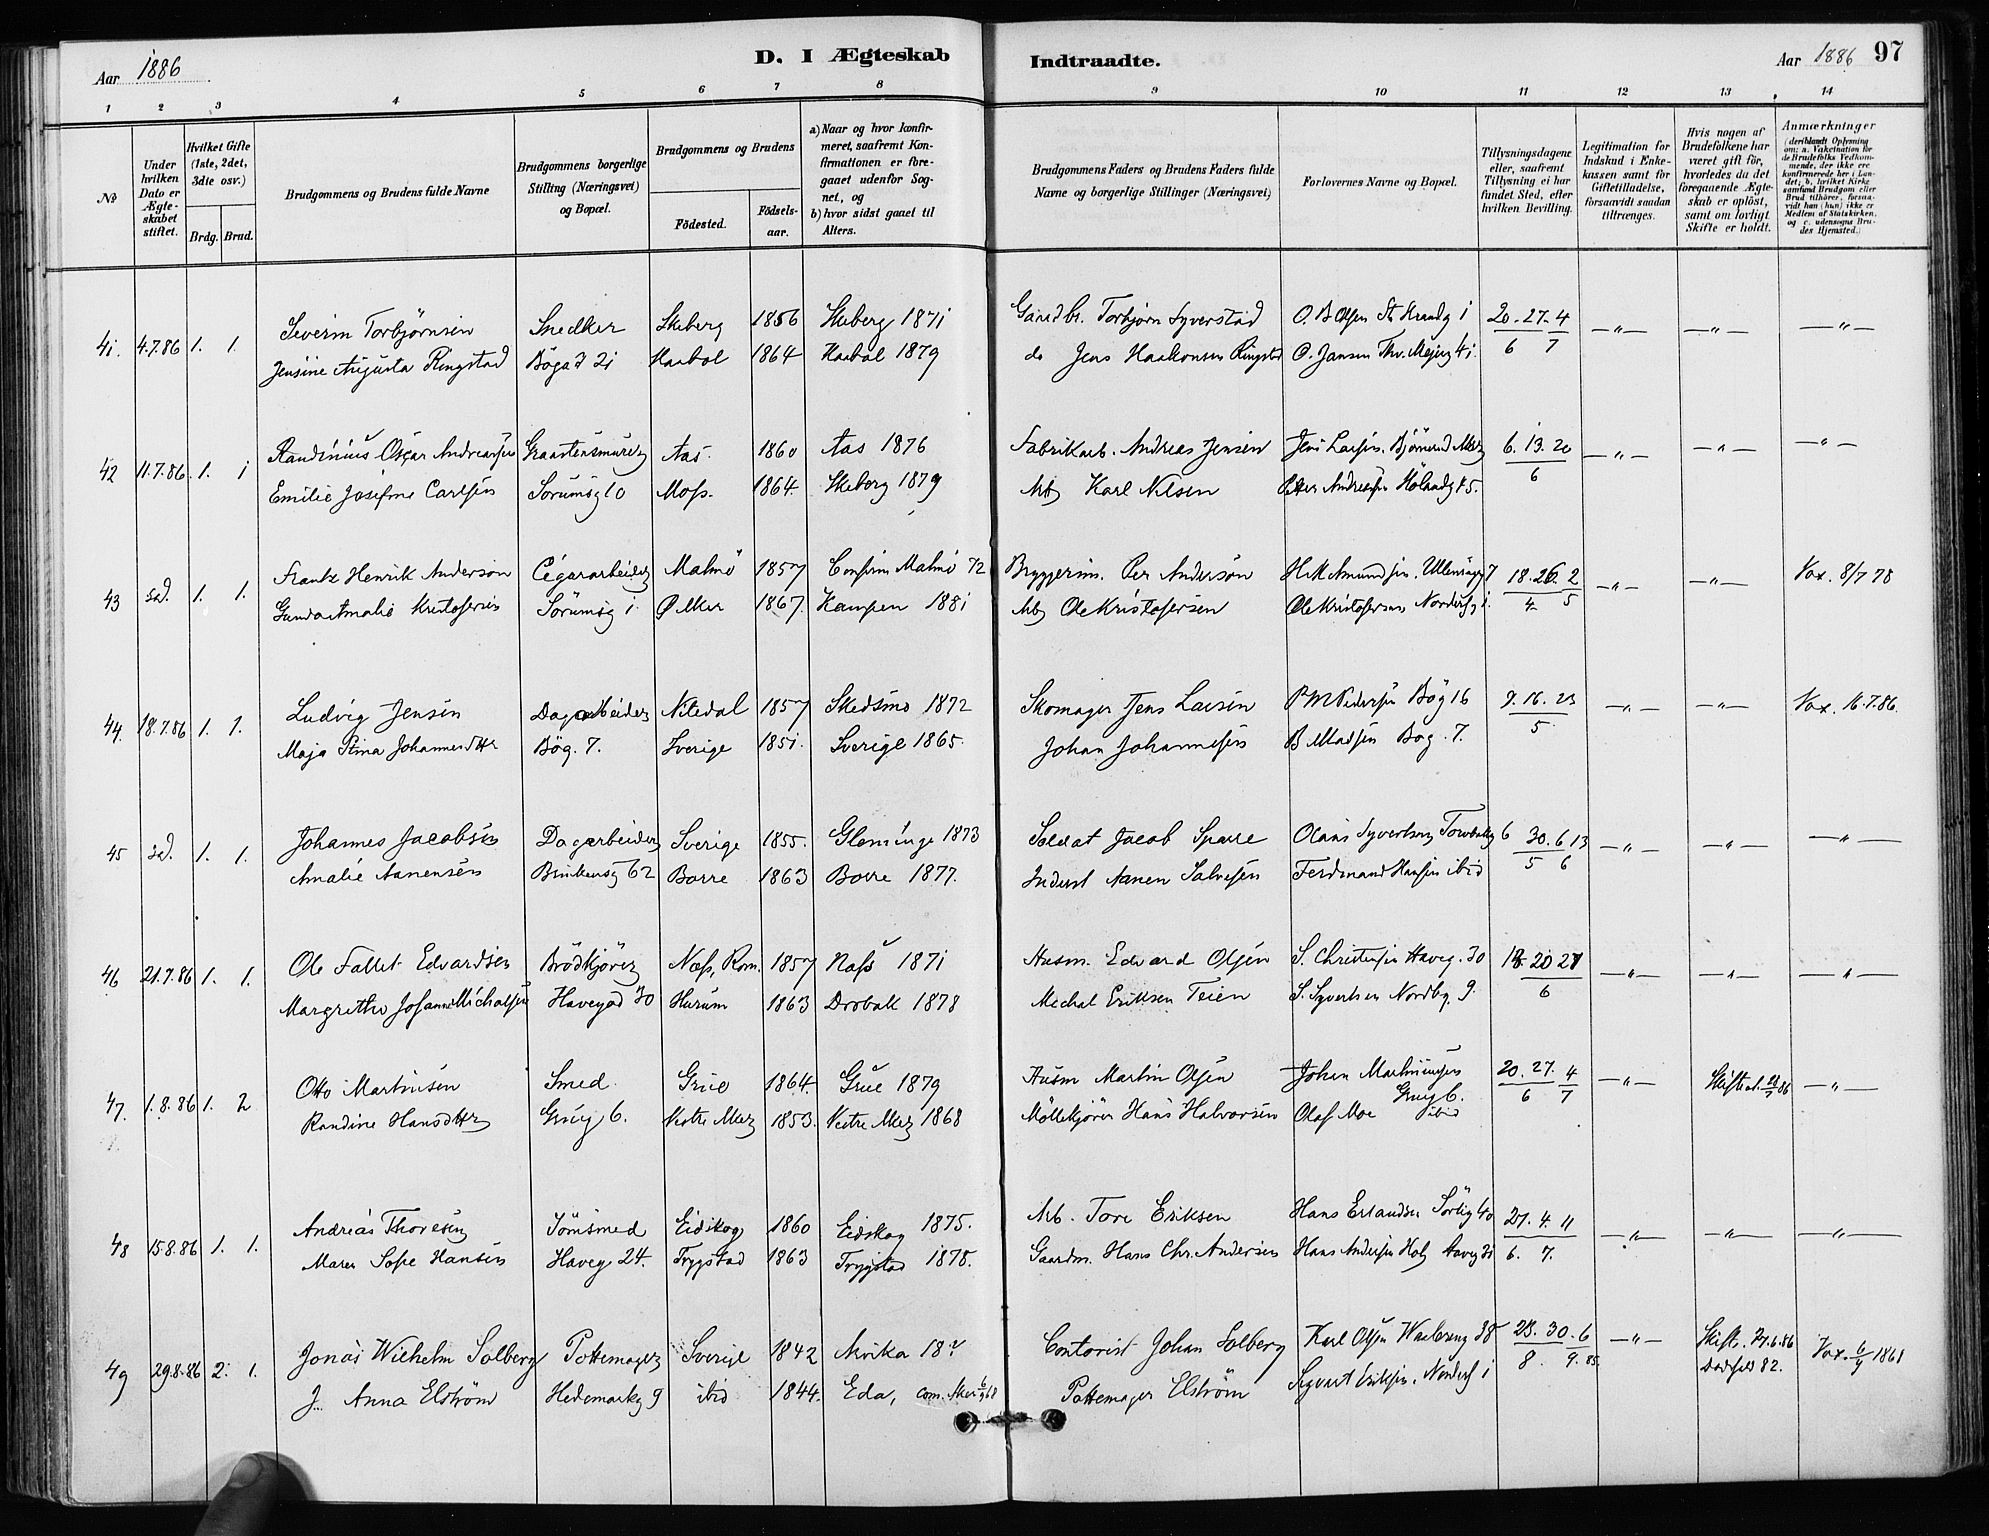 Aar 1886
D. I Ægteskab Indtraadte.
Aar 1886 97
1 2 3 4 5 6 7 8 9 10 11 12 13 14
No
Under hvilken Dato er Ægteskabet stiftet.
Hvilket Gifte (1ste, 2det, 3die osv.)
Brdg. Brud.
Brudgommens og Brudens fulde Navne
Brudgommens borgerlige Stilling (Næringsvei) og Bopæl.
Brudgommens og Brudens
Födested. Födselsaar.
a) Naar og hvor konfirmeret, saafremt Konfirmationen er foregaaet udenfor Sognet, og
b) hvor sidst gaaet til Alters.
Brudgommens Faders og Brudens Faders fulde Navne og borgerlige Stillinger (Næringsvei)
Forlovernes Navne og Bopæl.
Tillysningsdagene eller, saafremt Tillysning ei har fundet Sted, efter hvilken Bevilling.
Legitimation for Indskud i Enkekassen samt for Giftetilladelse, forsaavidt saadan tiltrænges.
Hvis nogen af Brudefolkene har været gift før, hvorledes da det foregaaende Ægteskab er oplöst, samt om lovligt Skifte er holdt.
Anmærkninger
(deriblandt Oplysning om: a. Vakcination for de Brudefolks Vedkommende, der ikke ere konfirmerede her i Landet; b. hvilket Kirkesamfund Brudgom eller Brud tilhörer, forsaavidt han (hun) ikke er Medlem af Statskirken, og c. udensogns Brudes Hjemsted.)
41. 4.7.86 1. 1. Severin Torbjörnsen Snedker Skiberg 1856 Skiberg 1871 Gaardbr. Torbjörn Syverstad O. B Olsen St. Strandg 1 20. 27. 4 —"— —"— —"—
Jensine Augusta Ringstad Bögad 21 Kraabol 1864 Kraabol 1879 do Jens Haakonsen Ringstad O. Jansen Thv. Meyersg 41. 6 7
42 11.7.86. 1. 1 Randinius Oscar Andreasen Graastensmurer Aas 1860 Aas 1876 Fabrikarb. Andreas Jensen Jens Larsen. 6. 13. 20 —"— —"— —"—
Emilie Josefine Carlsen Sorumsg 10 Moss. 1864. Skiberg 1879 Arb Karl Nilsen Petter Andreassen 6
43 sd. 1. 1. Frantz Henrik Anderson Cigararbeider Malmö 1857 Confirm Malmö 72 Bryggerim. Per Anderson H. M Amundsen. 18. 26. 2 —"— —"— Vax. 8/7 78
Gunda Amalie Kristofersen Sörumsg 1. Ø Aker 1867. Kampen 1881 Arb Ole Kristofersen Ole Kristofersen Norderhg 1. 4 5
44. 18.7.86 1. 1. Ludvig Jensen Dagarbeider Nitedal 1857 Skedsmo 1872 Skomager Jens Larsen P M Pedersen Bög 16 9. 16. 23 —"— —"— Vax. 16.7.86.
Maja Stina Johannesdttr Bög. 7. Sverige 1851. Sverige 1865. Johan Johannesen B Madsen Bog. 7. 5
45 sd. 1. 1. Johannes Jacobsen Dagarbeider Sverige 1855. Glominge 1873 Soldat Jacob Sparre Olaus Syvertsen 6 30. 6 13 —"— —"— —"—
Amalie Aanensen Brinkensg 62 Borre 1863 Borre 1877. Inderst Aanen Salvesen Ferdinand Hansen ibid 5 6
46 21.7.86 1. 1. Ole Fallet Edvardsen Brödkjörer Næss, Rom. 1857 Næss 1871 Husm. Edvard Olsen S. Christensen Haveg. 30 13. 20 27 —"— —"— —"—
Margrethe Johanne Michalsen Havegad 30 Hurum 1863 Drobak 1878 Michal Eriksen Teien S. Syvertsen Nordbg. 9. 6
47. 1.8.86 1. 2 Otto Martinsen Smed Grue 1864. Grue 1879 Husm Martin Olsen Johan Martinsen Grug 6. 20. 27. 4 —"— Skifteat. 28/7 86 —"—
Randine Hansdttr Grüg 6. Vestre Aker 1853. Vestre Aker 1868 Möllekjörer Hans Halvorsen Olaf Moe ibid 6 7
48 15.8.86 1. 1. Andreas Thoresen Jernsmed Eidskog 1860 Eidskog 1875. Arb. Tore Eriksen Hans Erlandsen Sörlig 40 27. 4. 11 —"— —"— —"—
Maren Sofie Hansen Haveg 24. Trygstad 1863 Trygstad 1878. Gaardm. Hans Chr. Andersen Hans Andersen Haveg 31 6. 7.
49 29.8.86 2. 1. Jonas Wilhelm Solberg Pottemager Sverige 1842 Arvika 18? Contorist Johan Solberg Karl Olsen Waalereng 38 23. 30. 6 —"— Skift. 21.6.86 Vax. 6/9 1861
J. Anna Elström Hedemarkg 9 ibid 1844. Eda, com. Aker Pottemager Elström Sigvart Eriksen. Norderh 1 8. 9. 85. Dödsfald 82.